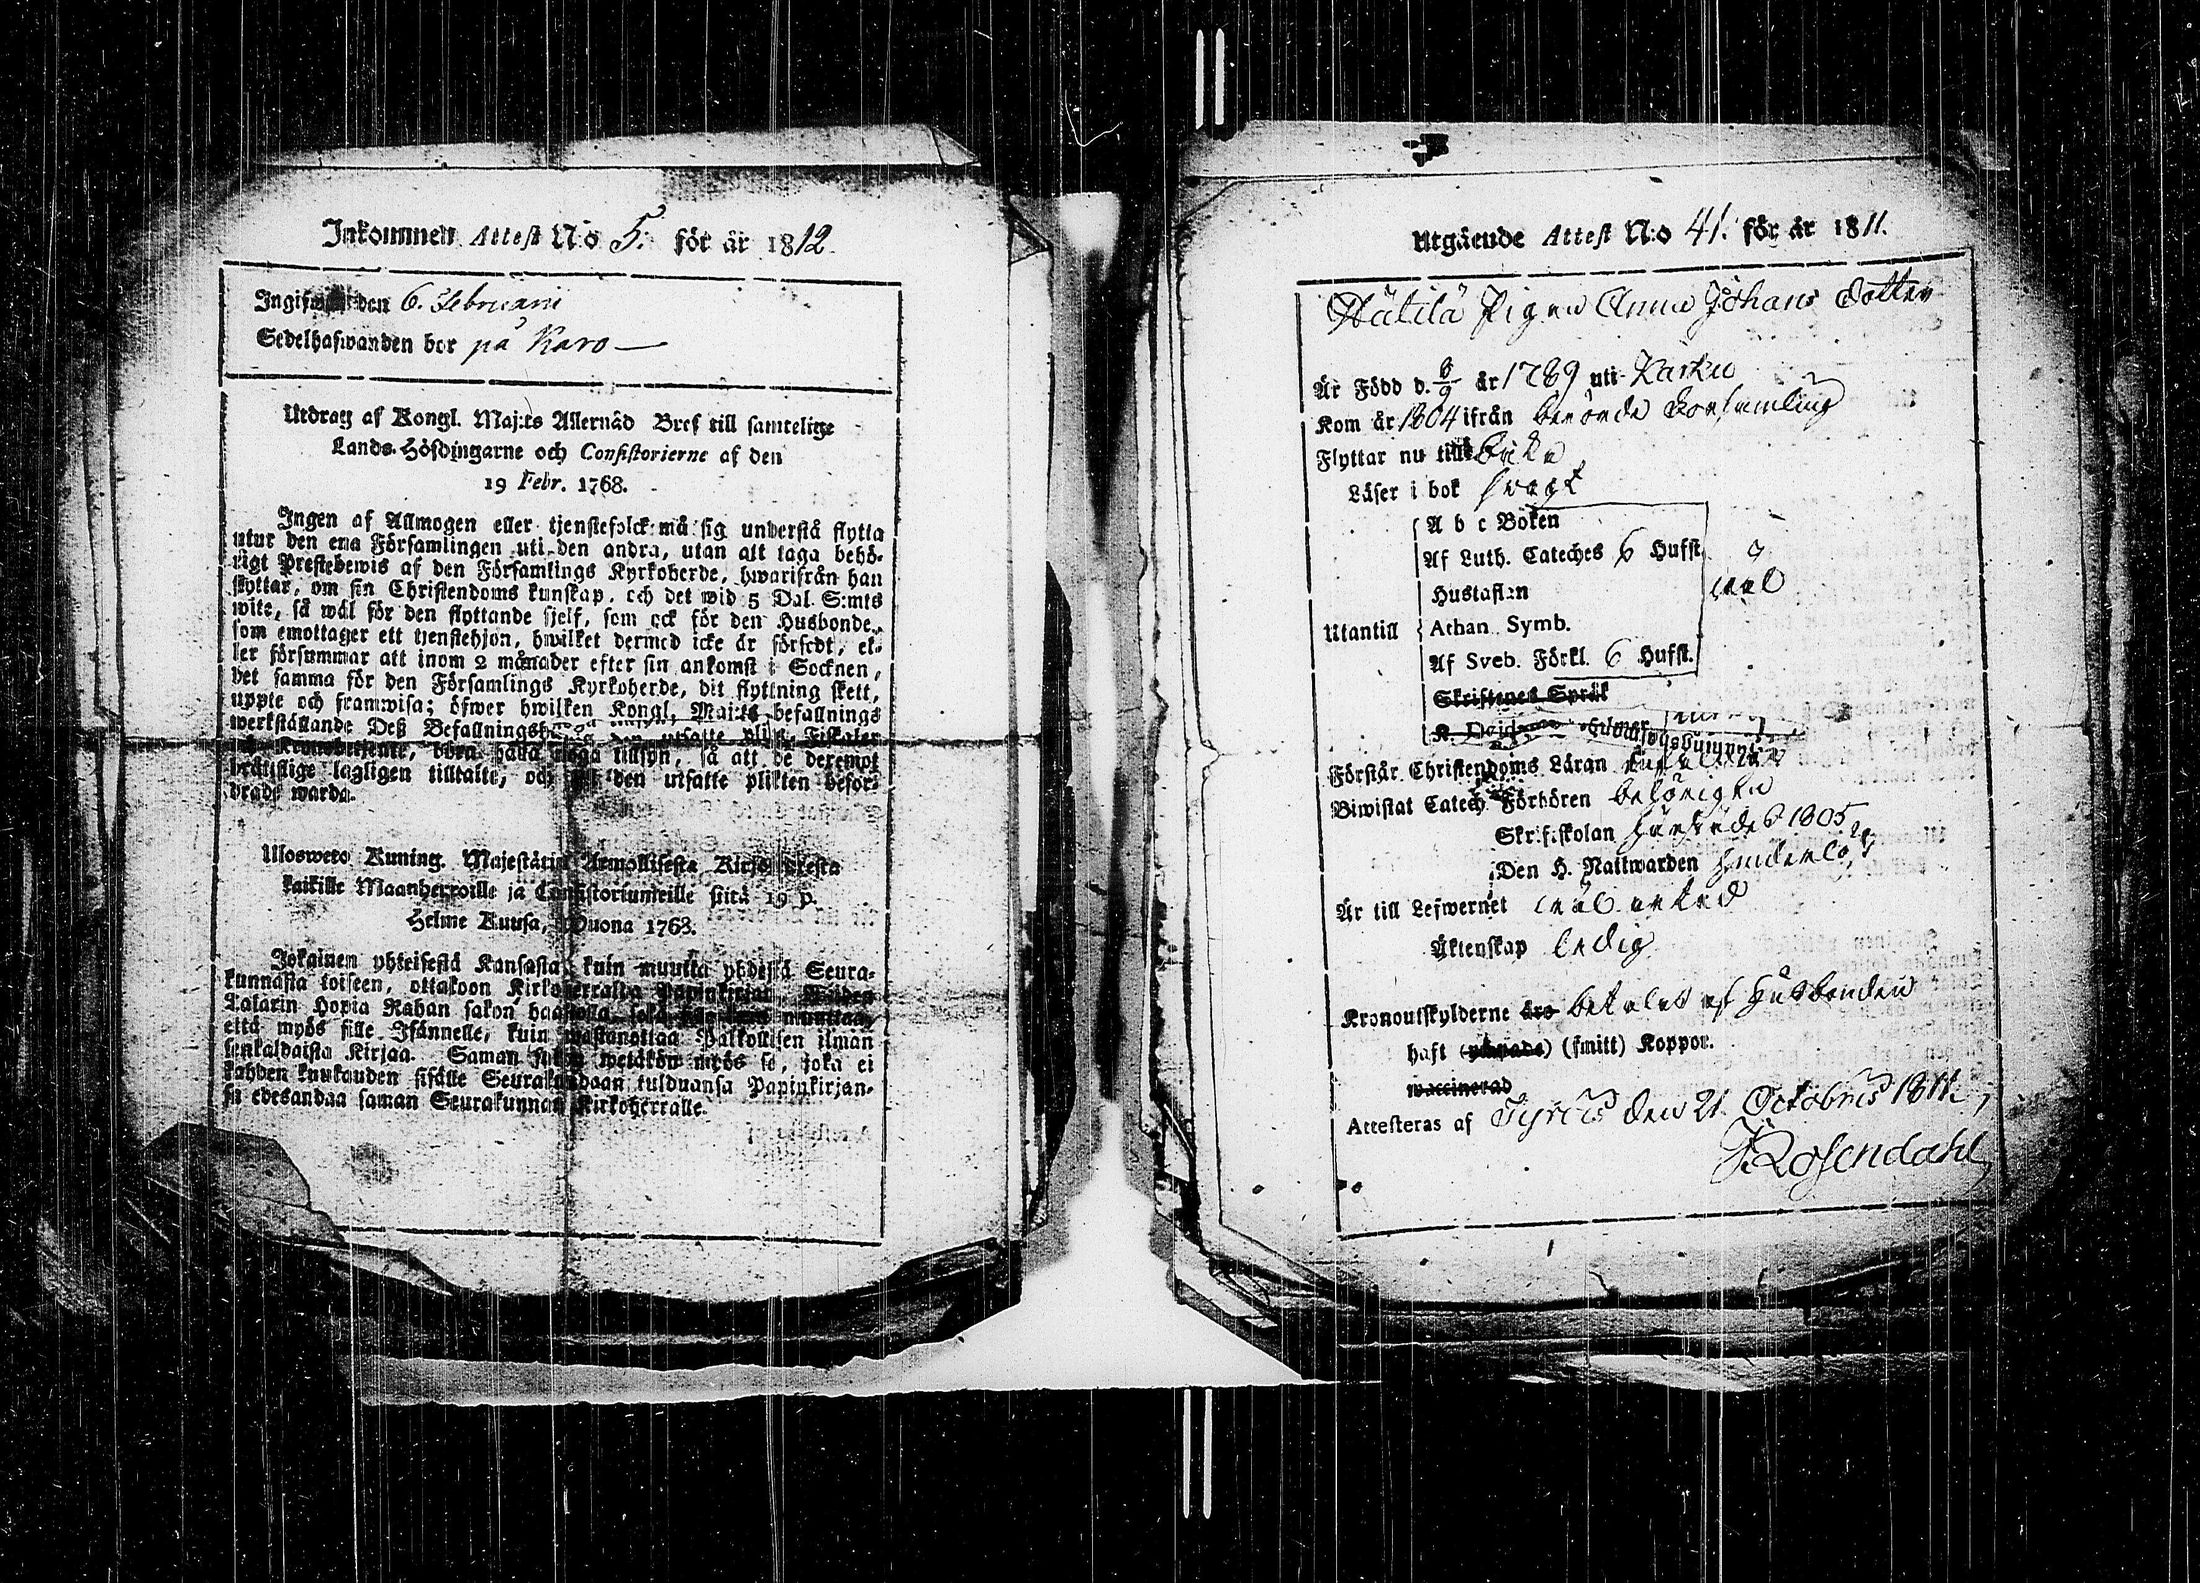 Inkommen Attest N:o 5. för år 1812.
Ingifwen den 6. Februarii
Sedelhafwanden bor på Karo
Utdrag af Kongl. Maj:ts Allernåd Bref till samtelige
Lands-Höfdingarne och Consistorierne af den
19 Febr. 1768.
Ingen af Allmogen eller tjenstefolck må sig understå flytta
utur den ena Församlingen uti den andra, utan att taga behö-
rigt Prestebewis af den Församlings Kyrkoherde, hwarifrån han
flyttar, om sin Christendoms kunskap, och det wid 5 Dal. S:mts
wite, så wäl för den flyttande sjelf, som ock för den Husbonde,
som emottager ett tjenstehjon, hwilket dermed icke är försedt, el-
ler försummar att inom 2 månader efter sin ankomst i Socknen,
det samma för den Församlings Kyrkoherde, dit flyttning skett,
uppte och framwisa; öfwer hwilken Kongl. Maj:ts befallnings
werkställande Deß Befallningsh
hålla noga tillsyn, så att de deremot
brättslige lagligen tilltalte, och den utsatte plikten befor-
drade warda.
Ulosweto Kuning. Majestätin Armollisesta Kirjoituxesta
kaikille Maanherroille ja Consistoriumeille siitä 19 p.
Helme Kuusa, Wuona 1768.
Jokainen yhteisestä Kansasta, kuin muutta yhdestä Seura-
kunnasta toiseen, ottakoon Kirkoherralta Papinkirjan,
Talarin Hopia Rahan sakon haastolla,
että myös sille Isännelle, kuin wastanottaa Palkollisen ilman
senkaldaista Kirjaa. Saman sakon wetäkön myös se, joka ei
kahden kuukauden sisälle Seurakundaan tulduansa Papinkirjan-
sa edesandaa saman Seurakunnan Kirkoherralle.
Utgående Attest N:o 41. för år 1811.
Pigan Anna Johans dotter
Är Född d. 8/9 år 1789 uti Karku
Kom år 1804 ifrån berörde Församling
Flyttar nu till
Läser i bok swagt
A b c Boken
Af Luth. Cateches 6 Hufst.
Hustaflan
wäl
Utantill
Athan. Symb.
Af Sveb. Förkl. 6 Hufst.
Skriftenes Språk
Förstår Christendoms Läran
Biwistat Catech. Förhören behörigen
Skriftskolan härstädes 1805
Den H. Nattwarden
Är till Lefwernet wäl artad
Äktenskap ledig
Kronoutskylderne äro betalet af Husbonden
haft (ympade) (smitt) Koppor.
waccinerad
Attesteras af Tyrvis den 21 Octobris 1811,
J. Rosendahl